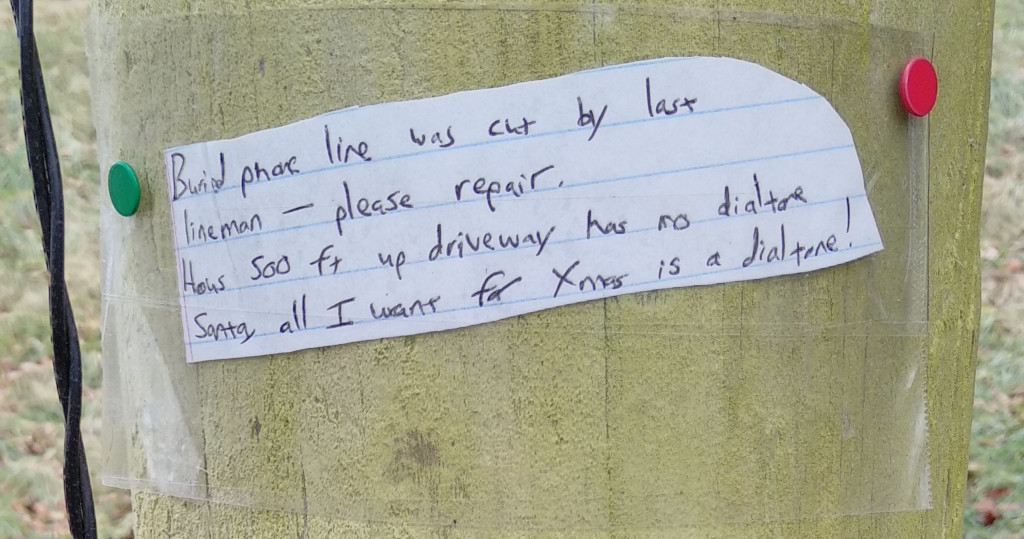 Buried phone line was cut by last
lineman — please repair.
Hous 500 ft up driveway has no dialtone
Santa all I want for Xmas is a dialtone!